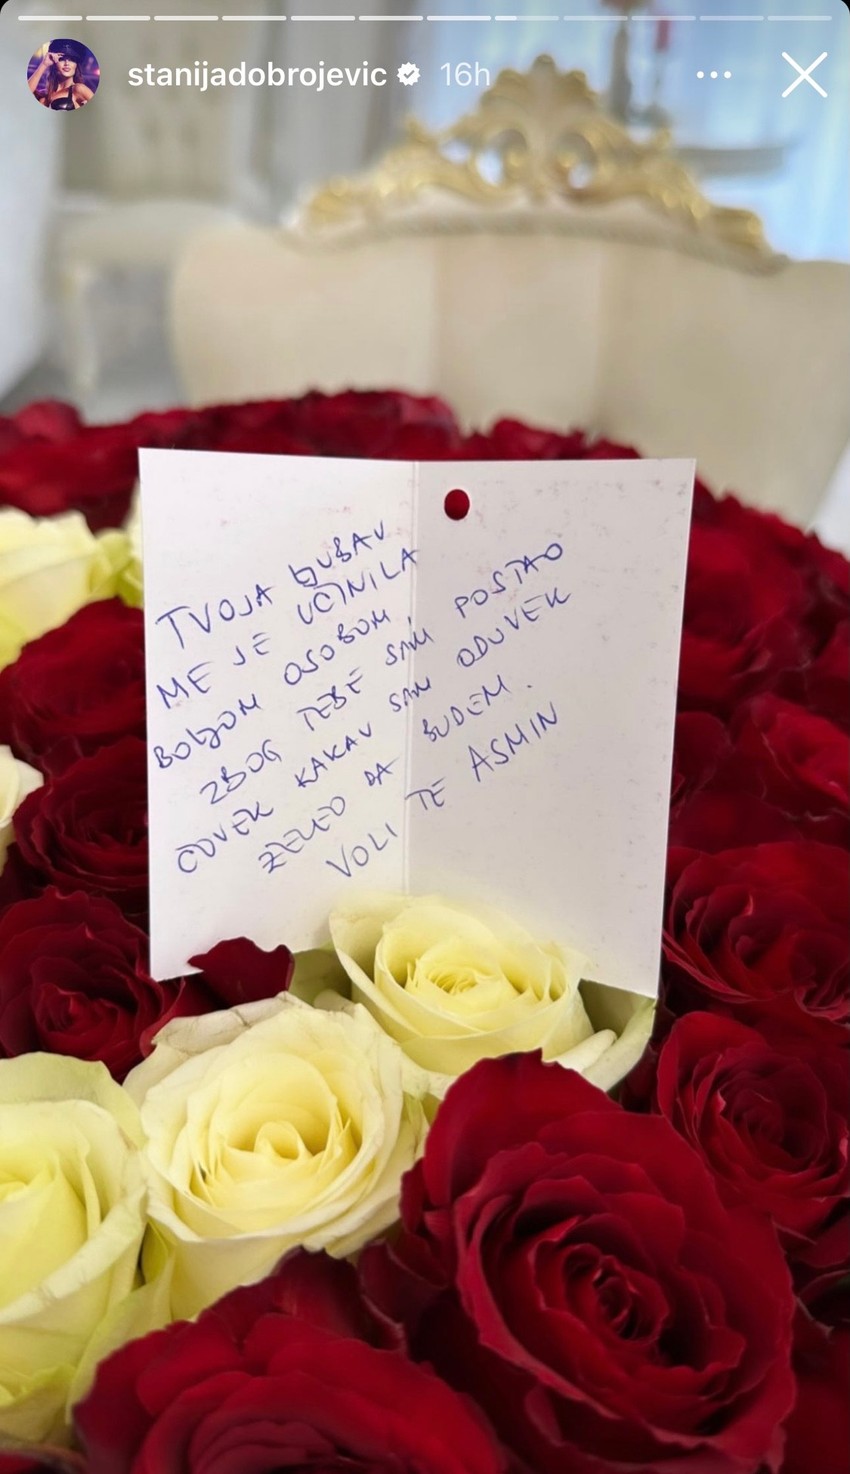 stanijadobrojevic 16h
TVOJA LJUBAV
ME JE UČINILA
BOLJOM OSOBOM
ZBOG TEBE SAM POSTAO
ČOVEK KAKAV SAM ODUVEK
ŽELEO DA BUDEM.
VOLI TE ASMIN